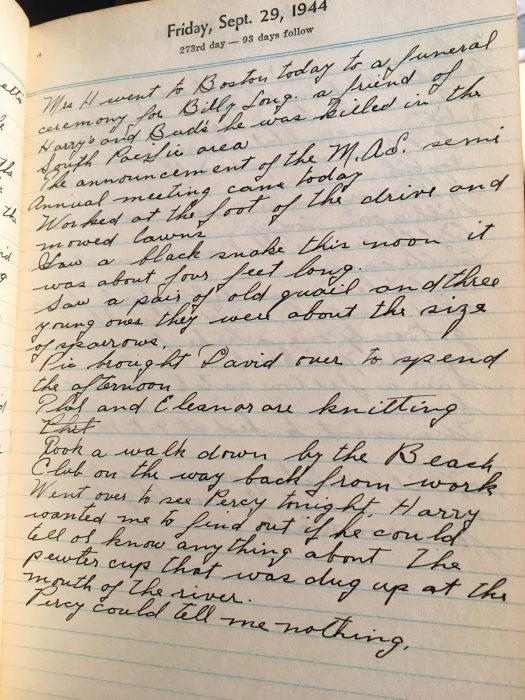 Friday, Sept. 29, 1944
273rd day — 93 days follow
Mrs H went to Boston today to a funeral
ceremony for Billy Long. a friend of
Harry's and Bud's he was killed in the
South Pacific area
The announcement of the M.A.S. semi
Annual meeting came today
Worked at the foot of the drive and
mowed lawns
Saw a black snake this noon it
was about four feet long.
Saw a pair of old quail and three
young ones they were about the size
of sparrows.
Pie brought David over to spend
the afternoon
Phil and Eleanor are knitting
Took a walk down by the Beach
Club on the way back from work
Went over to see Percy tonight, Harry
wanted me to find out if he could
tell or know anything about the
pewter cup that was dug up at the
mouth of the river.
Percy could tell me nothing.